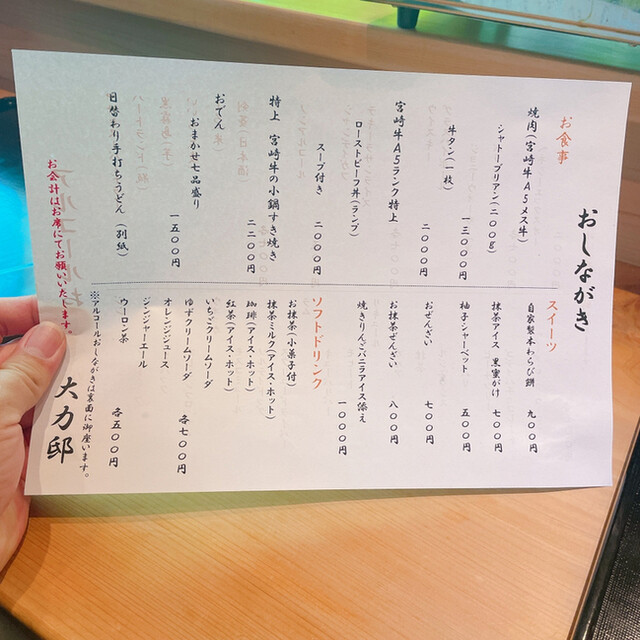 おしながき
お食事
焼肉(宮崎牛A5メス牛)
シャトーブリアン(二〇〇g)
一三〇〇〇円
牛タン(一枚)
二〇〇〇円
宮崎牛A5ランク特上
ローストビーフ丼(ランプ)
スープ付き 二〇〇〇円
特上 宮崎牛の小鍋すき焼き
二二〇〇円
おでん
おまかせ七品盛り
一五〇〇円
日替わり手打ちうどん(別紙)
スイーツ
自家製本わらび餅 九〇〇円
抹茶アイス 黒蜜がけ 七〇〇円
柚子シャーベット 五〇〇円
おぜんざい 七〇〇円
お抹茶ぜんざい 八〇〇円
焼きりんごバニラアイス添え
一〇〇〇円
ソフトドリンク
お抹茶(小菓子付)
抹茶ミルク(アイス・ホット)
珈琲(アイス・ホット)
紅茶(アイス・ホット)
いちごクリームソーダ
ゆずクリームソーダ
各七〇〇円
オレンジジュース
ジンジャーエール
ウーロン茶
各五〇〇円
※アルコールおしながきは裏面に御座います。
お会計はお席にてお願いいたします。
大力邸